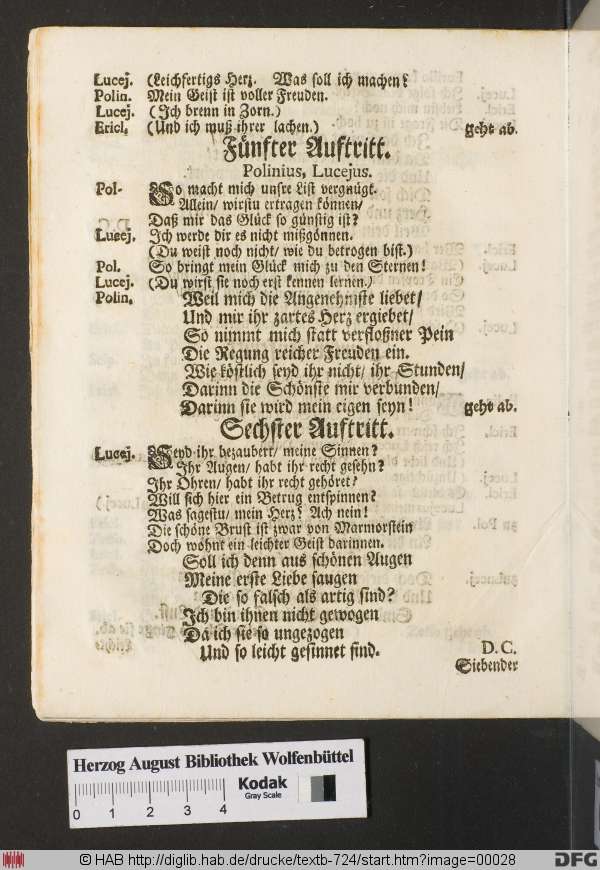 Lucej. (Leichfertigs Hertz. Was soll ich machen?
Polin. Mein Geist ist voller Freuden.
Lucej. (Ich brenn in Zorn.)
Ericl. (Und ich muß ihrer lachen.) geht ab.
Fünfter Auftritt.
Polinius, Lucejus.
Pol- So macht mich unsre List vergnügt.
Allein/ wirstu ertragen können/
Daß mir das Glück so günstig ist?
Lucej. Ich werde dir es nicht mißgönnen.
(Du weist noch nicht/ wie du betrogen bist.)
Pol. So bringt mein Glück mich zu den Sternen!
Lucej. (Du wirst sie noch erst kennen lernen.)
Polin. Weil mich die Angenehmste liebet/
Und mir ihr zartes Herz ergiebet/
So nimmt mich statt verfloßner Pein
Die Regung reicher Freuden ein.
Wie köstlich seyd ihr nicht/ ihr Stunden/
Darinn die Schönste mir verbunden/
Darinn sie wird mein eigen seyn! geht ab.
Sechster Auftritt.
Lucej. Seyd ihr bezaubert/ meine Sinnen?
Ihr Augen/ habt ihr recht gesehn?
Ihr Ohren/ habt ihr recht gehöret?
Will sich hier ein Betrug entspinnen?
Was sagestu/ mein Herz? Ach nein!
Die schöne Brust ist zwar von Marmorstein
Doch wohnt ein leichter Geist darinnen.
Soll ich denn aus schönen Augen
Meine erste Liebe saugen
Die so falsch als artig sind?
Ich bin ihnen nicht gewogen
Da ich sie so ungezogen
Und so leicht gesinnet find. D. C.
Siebender
Herzog August Bibliothek Wolfenbüttel
Kodak
Gray Scale
0 1 2 3 4
© HAB http://diglib.hab.de/drucke/textb-724/start.htm?image=00028
DFG